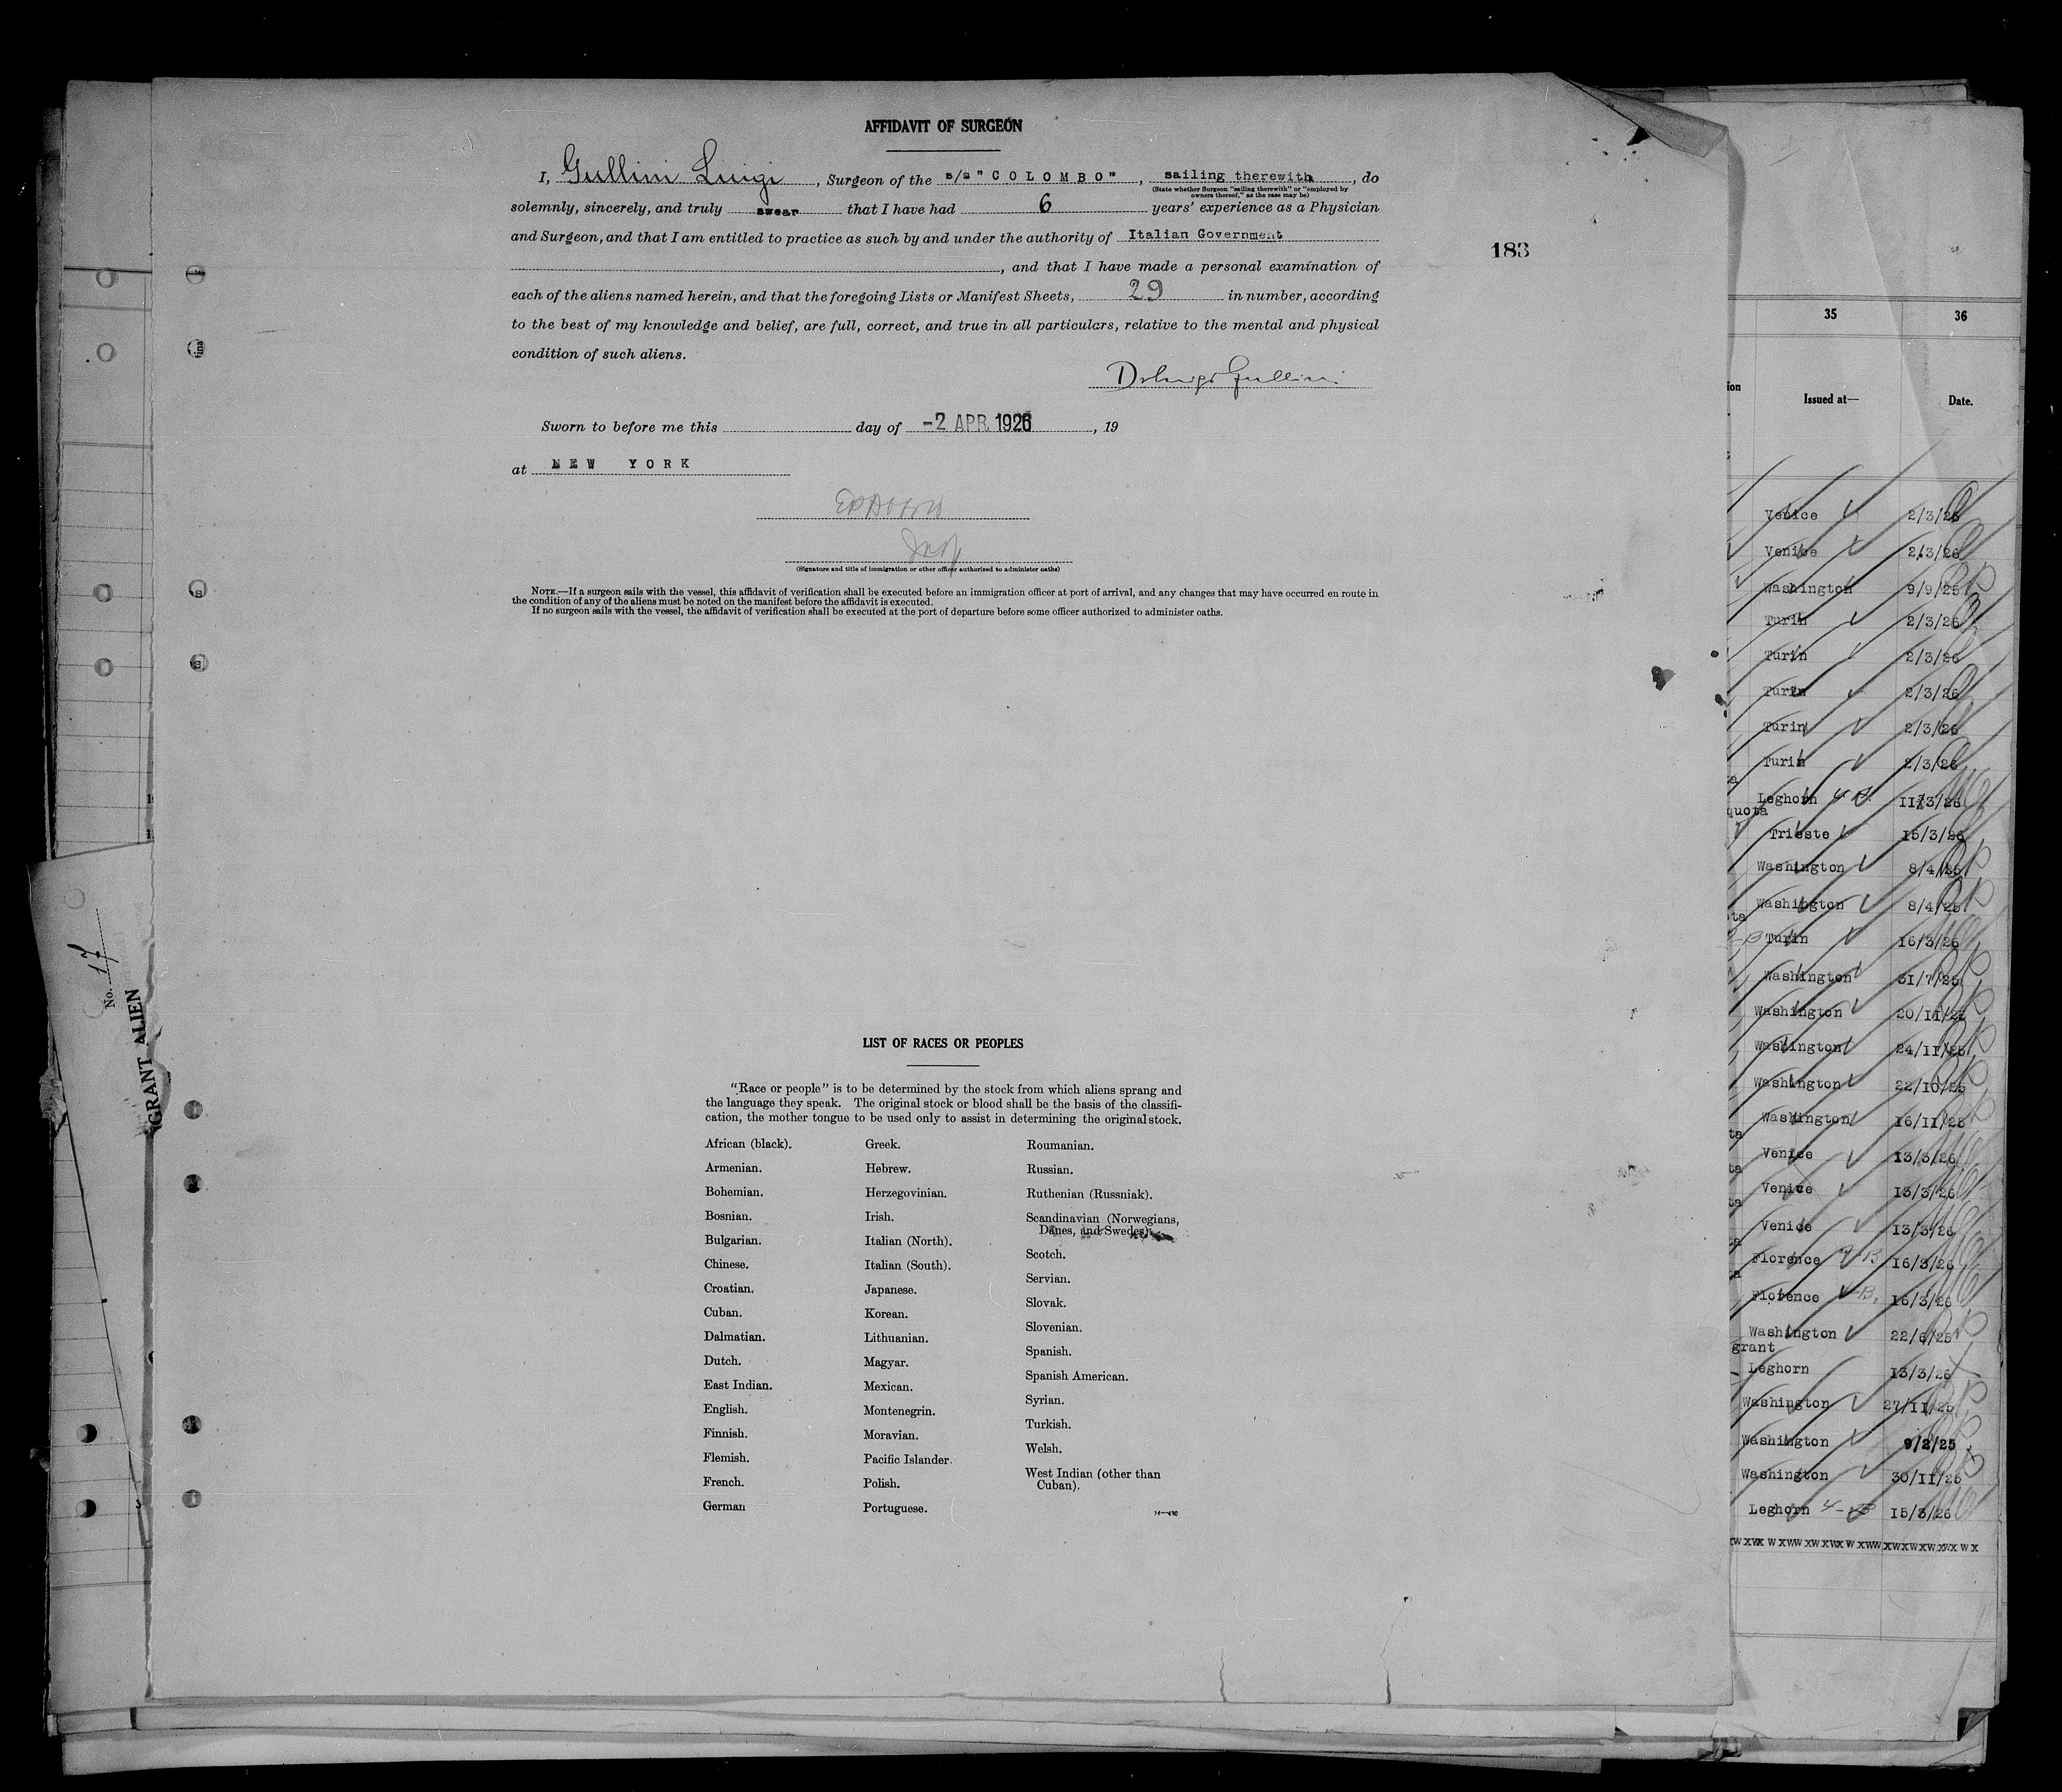 AFFIDAVIT OF SURGEON
I, Gullini Luigi, Surgeon of the s/s "COLOMBO", sailing therewith, do
(State whether Surgeon "sailing therewith" or "employed by
owners thereof," as the case may be)
solemnly, sincerely, and truly swear that I have had 6 years' experience as a Physician
and Surgeon, and that I am entitled to practice as such by and under the authority of Italian Government
, and that I have made a personal examination of
183
each of the aliens named herein, and that the foregoing Lists or Manifest Sheets, 29 in number, according
to the best of my knowledge and belief, are full, correct, and true in all particulars, relative to the mental and physical
condition of such aliens.
Dr Luigi Gullini
Sworn to before me this day of -2 APR. 1926, 19
at NEW YORK
(Signature and title of immigration or other officer authorized to administer oaths)
NOTE.—If a surgeon sails with the vessel, this affidavit of verification shall be executed before an immigration officer at port of arrival, and any changes that may have occurred en route in
the condition of any of the aliens must be noted on the manifest before the affidavit is executed.
If no surgeon sails with the vessel, the affidavit of verification shall be executed at the port of departure before some officer authorized to administer oaths.
LIST OF RACES OR PEOPLES
"Race or people" is to be determined by the stock from which aliens sprang and
the language they speak. The original stock or blood shall be the basis of the classifi-
cation, the mother tongue to be used only to assist in determining the original stock.
African (black).
Armenian.
Bohemian.
Bosnian.
Bulgarian.
Chinese.
Croatian.
Cuban.
Dalmatian.
Dutch.
East Indian.
English.
Finnish.
Flemish.
French.
German
Greek.
Hebrew.
Herzegovinian.
Irish.
Italian (North).
Italian (South).
Japanese.
Korean.
Lithuanian.
Magyar.
Mexican.
Montenegrin.
Moravian.
Pacific Islander.
Polish.
Portuguese.
Roumanian.
Russian.
Ruthenian (Russniak).
Scandinavian (Norwegians,
Danes, and Swedes).
Scotch.
Servian.
Slovak.
Slovenian.
Spanish.
Spanish American.
Syrian.
Turkish.
Welsh.
West Indian (other than
Cuban).
No. 17
GRANT ALIEN
35 36
Issued at— Date.
Venice 2/3/26
Venice 2/3/26
Washington 9/9/25
Turin 2/3/26
Turin 2/3/26
Turin 2/3/26
Turin 2/3/26
Turin 2/3/26
Leghorn 4-B. 11/3/26
quota
Trieste 15/3/26
Washington 8/4/25
Washington 8/4/25
Turin 16/3/26
Washington 31/7/25
Washington 20/11/25
Washington 24/11/25
Washington 22/10/25
Washington 16/11/25
Venice 13/3/26
Venice 13/3/26
Venice 13/3/26
Florence 4-B 16/3/26
Florence 4-B. 16/3/26
Washington 22/6/25
grant
Leghorn 13/3/26
Washington 27/11/25
Washington 9/2/25
Washington 30/11/25
Leghorn 4-B 15/3/26